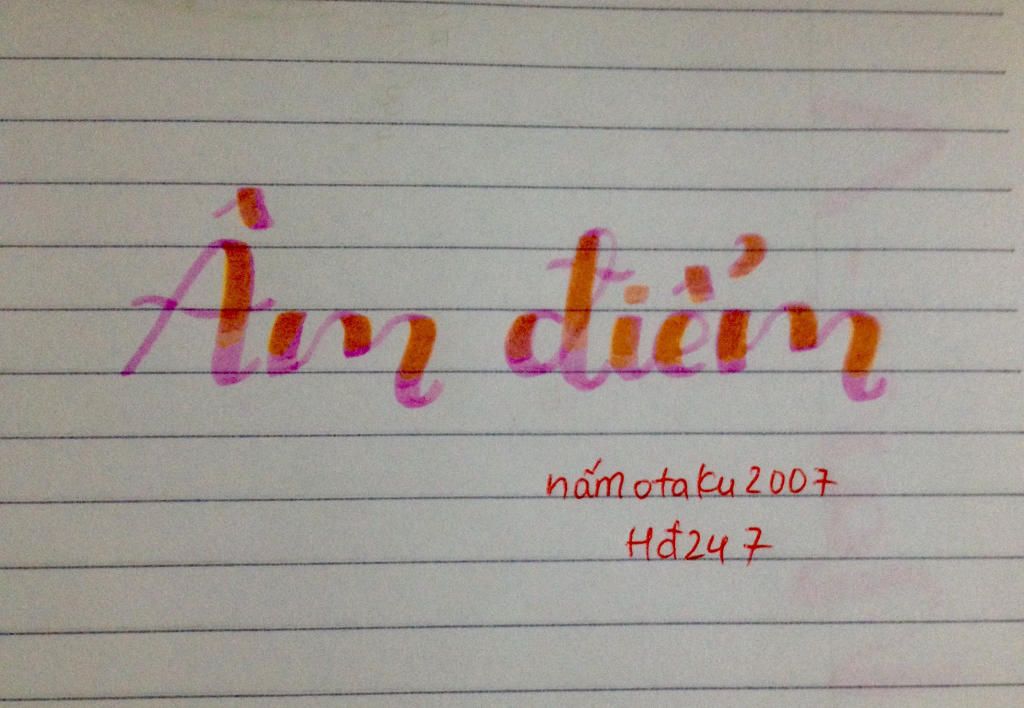 Âm điểm
nấmotaku2007
Hđ247